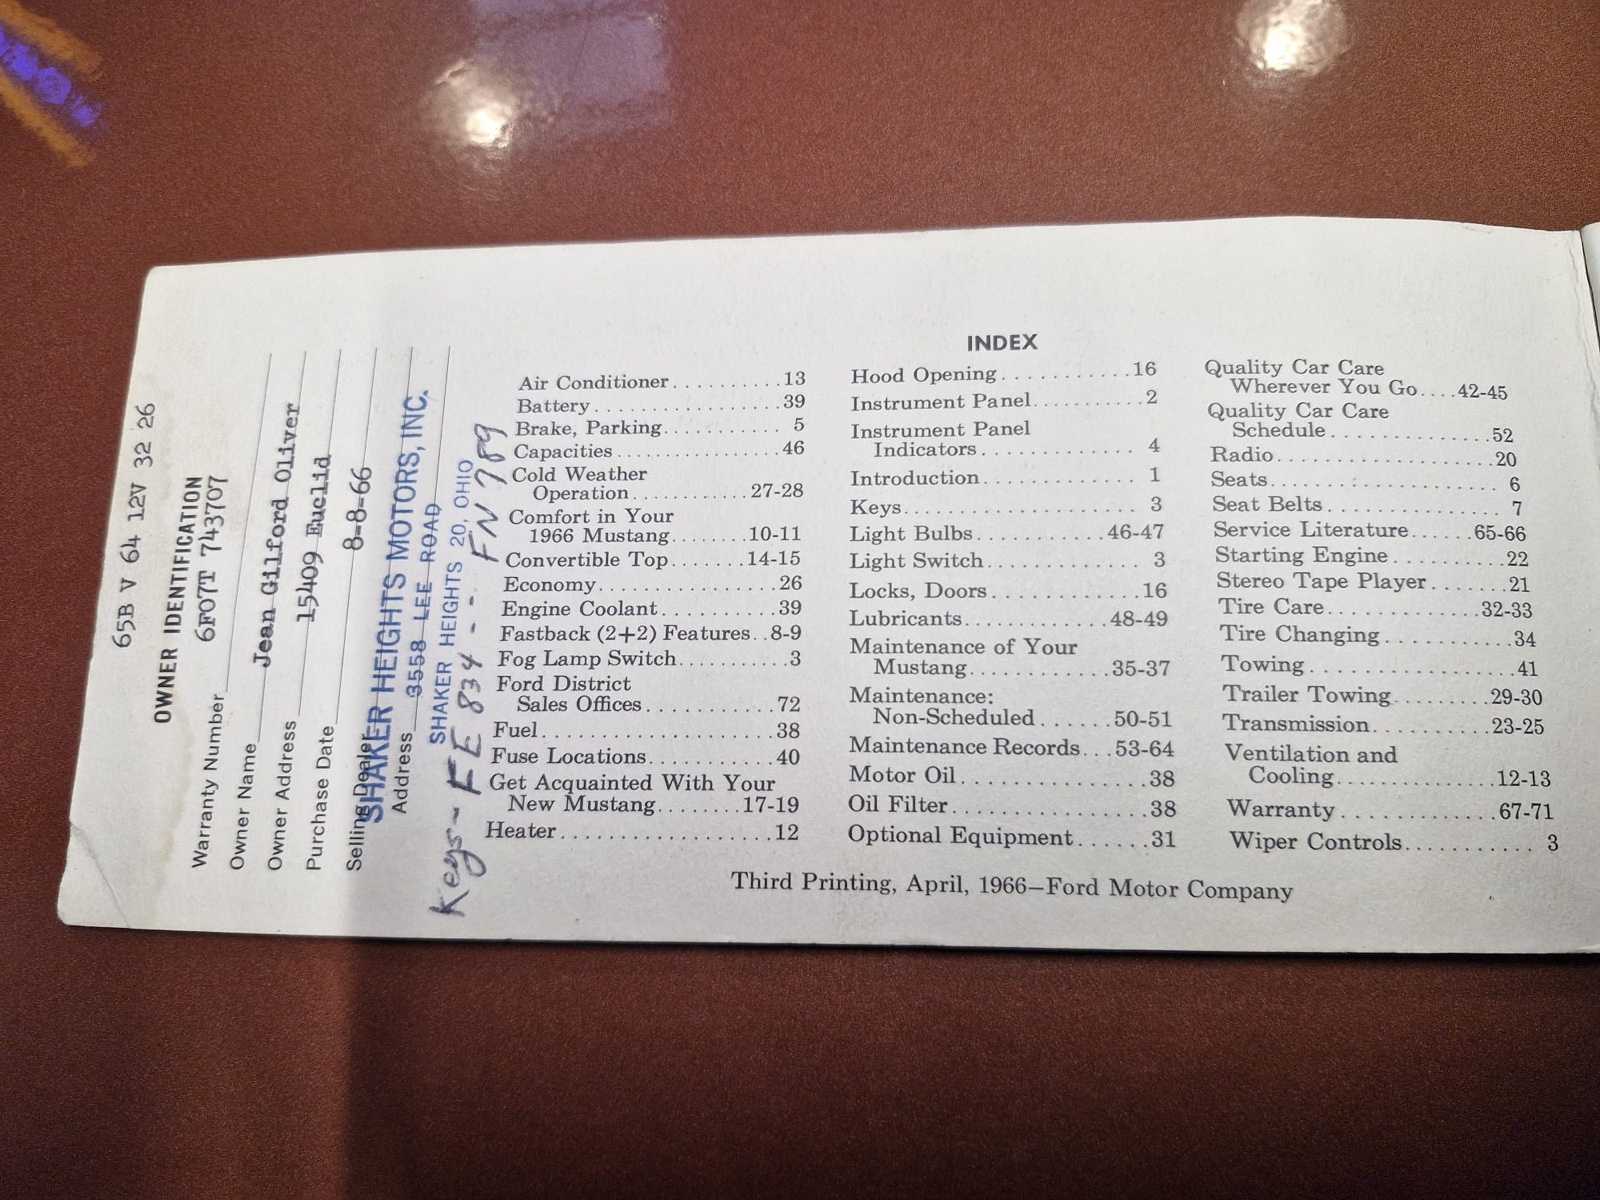 65B V 64 12V 32 26
OWNER IDENTIFICATION
Warranty Number 6F07T 743707
Owner Name Jean Gilford Oliver
Owner Address 15409 Euclid
Purchase Date 8-8-66
Selling Dealer SHAKER HEIGHTS MOTORS, INC.
Address 3558 LEE ROAD
SHAKER HEIGHTS 20, OHIO
Keys - FE 834 - - FN 789
INDEX
Air Conditioner..........13
Battery..................39
Brake, Parking........... 5
Capacities...............46
Cold Weather
Operation...........27-28
Comfort in Your
1966 Mustang.......10-11
Convertible Top.......14-15
Economy.................26
Engine Coolant..........39
Fastback (2+2) Features..8-9
Fog Lamp Switch..........3
Ford District
Sales Offices...........72
Fuel.....................38
Fuse Locations...........40
Get Acquainted With Your
New Mustang........17-19
Heater...................12
Hood Opening...........16
Instrument Panel..........2
Instrument Panel
Indicators............. 4
Introduction............. 1
Keys..................... 3
Light Bulbs..........46-47
Light Switch............. 3
Locks, Doors............16
Lubricants...........48-49
Maintenance of Your
Mustang...........35-37
Maintenance:
Non-Scheduled......50-51
Maintenance Records...53-64
Motor Oil................38
Oil Filter................38
Optional Equipment......31
Quality Car Care
Wherever You Go....42-45
Quality Car Care
Schedule..............52
Radio...................20
Seats.................... 6
Seat Belts............... 7
Service Literature......65-66
Starting Engine..........22
Stereo Tape Player.......21
Tire Care............32-33
Tire Changing...........34
Towing..................41
Trailer Towing........29-30
Transmission.........23-25
Ventilation and
Cooling.............12-13
Warranty............67-71
Wiper Controls........... 3
Third Printing, April, 1966—Ford Motor Company